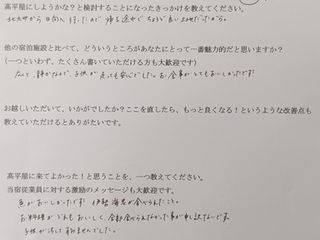 高平屋にしようかな?と検討することになったきっかけを教えてください。
北九州から日向へ行ったので、帰る途中でちょうど良い
他の宿泊施設と比べて、どういうところがあなたにとって一番魅力的だと思いますか?
(一つといわず、たくさん書いていただける方も大歓迎です)
静かなんで、子供が走っても安心でした。お食事がとてもおいしかったです!
お越しいただいて、いかがでしたか?ここを直したら、もっと良くなる!というような改善点も
教えていただけるとありがたいです。
高平屋に来てよかった!と思うことを、一つ教えてください。
当宿従業員に対する激励のメッセージも大歓迎です。
魚がおいしいです! 伊勢海老が食べられたこと。
お料理がどれもおいしく、全部食べられなかった事が申し訳ないです。
子供が汚してすみませんでした。